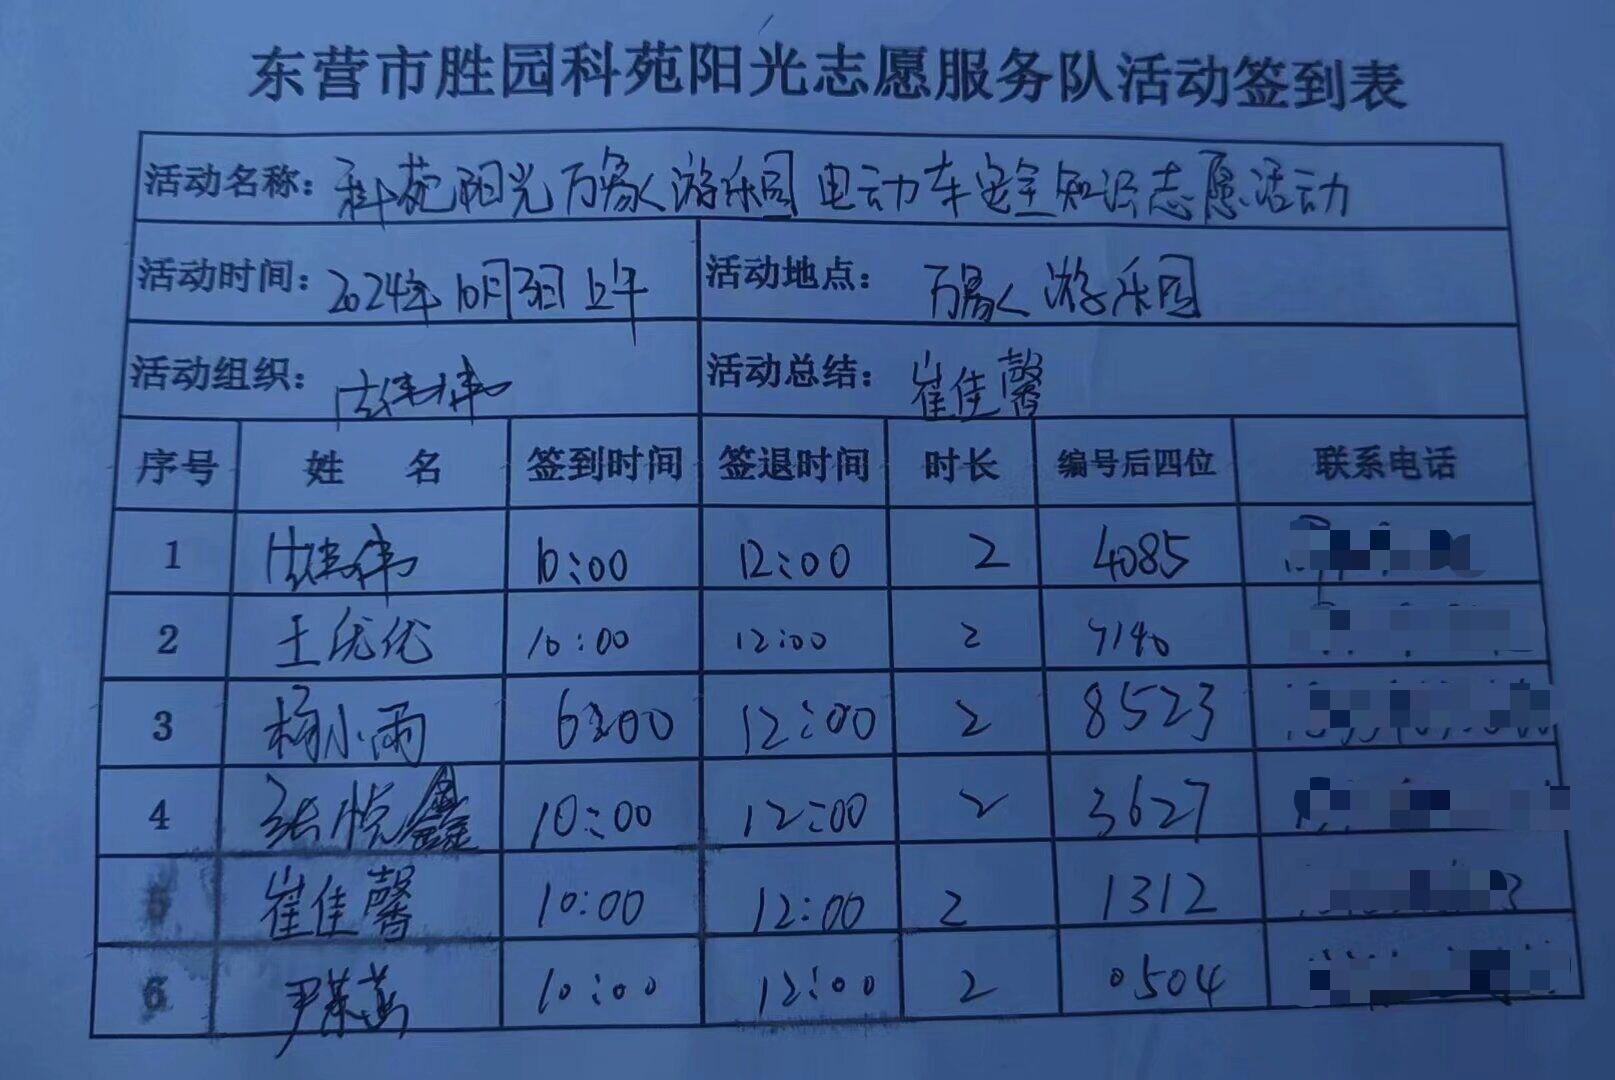 东营市胜园科苑阳光志愿服务队活动签到表
活动名称：科苑阳光万象人游乐园电动车安全知识志愿活动
活动时间：2024年10月3日上午 活动地点：万象人游乐园
活动组织： 活动总结：崔佳馨
序号 姓名 签到时间 签退时间 时长 编号后四位 联系电话
1 10:00 12:00 2 4085
2 王优优 10:00 12:00 2 7140
3 杨小雨 12:00 2 8523
4 张悦鑫 10:00 12:00 2 3627
5 崔佳馨 10:00 12:00 2 1312
6 10:00 12:00 2 0504